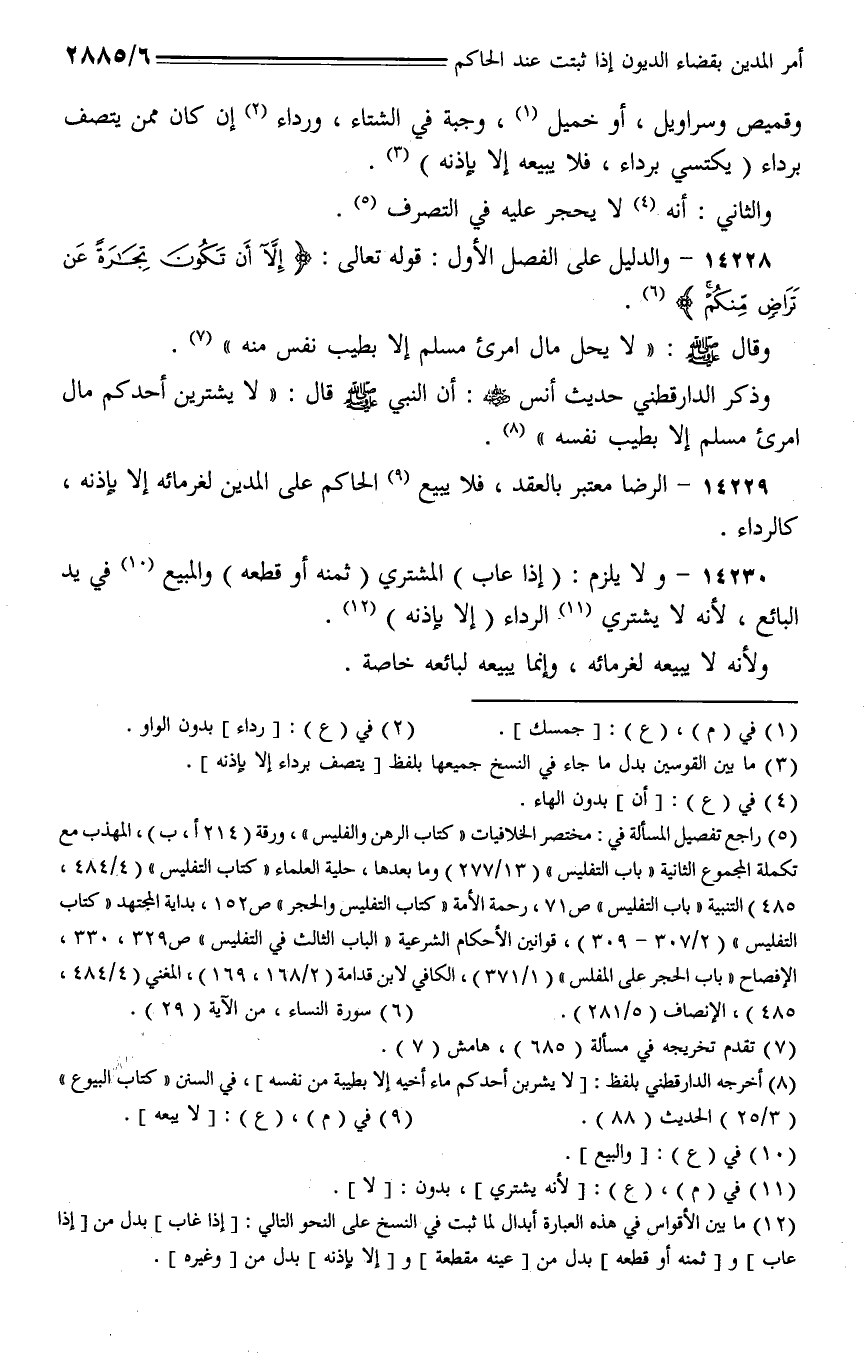 أمر المدين بقضاء الديون إذا ثبتت عند الحاكم ٢٨٨٥/٦
وقميص وسراويل ، أو خميل (١) ، وجبة في الشتاء ، ورداء (٢) إن كان ممن يتصف
برداء ( يكتسي برداء ، فلا يبيعه إلا بإذنه ) (٣) .
والثاني : أنه (٤) لا يحجر عليه في التصرف (٥) .
١٤٢٢٨ – والدليل على الفصل الأول : قوله تعالى : ﴿ إِلَّآ أَن تَكُونَ تِجَٰرَةً عَن
تَرَاضٍ مِّنكُمْ ﴾ (٦) .
وقال ﷺ : « لا يحل مال امرئ مسلم إلا بطيب نفس منه » (٧) .
وذكر الدارقطني حديث أنس رضي الله عنه : أن النبي ﷺ قال : « لا يشترين أحدكم مال
امرئ مسلم إلا بطيب نفسه » (٨) .
١٤٢٢٩ – الرضا معتبر بالعقد ، فلا يبيع (٩) الحاكم على المدين لغرمائه إلا بإذنه ،
كالرداء .
١٤٢٣٠ – و لا يلزم : ( إذا عاب ) المشتري ( ثمنه أو قطعه ) والمبيع (١٠) في يد
البائع ، لأنه لا يشتري (١١) الرداء ( إلا بإذنه ) (١٢) .
ولأنه لا يبيعه لغرمائه ، وإنما يبيعه لبائعه خاصة .
(١) في ( م ) ، ( ع ) : [ جمسك ] . (٢) في ( ع ) : [ رداء ] بدون الواو .
(٣) ما بين القوسين بدل ما جاء في النسخ جميعها بلفظ [ يتصف برداء إلا بإذنه ] .
(٤) في ( ع ) : [ أن ] بدون الهاء .
(٥) راجع تفصيل المسألة في : مختصر الخلافيات « كتاب الرهن والفليس » ، ورقة ( ٢١٤ أ ، ب ) ، المهذب مع
تكملة المجموع الثانية « باب التفليس » ( ٢٧٧/١٣ ) وما بعدها ، حلية العلماء « كتاب التفليس » ( ٤٨٤/٤ ،
٤٨٥ ) التنبية « باب التفليس » ص٧١ ، رحمة الأمة « كتاب التفليس والحجر » ص١٥٢ ، بداية المجتهد « كتاب
التفليس » ( ٣٠٧/٢ – ٣٠٩ ) ، قوانين الأحكام الشرعية « الباب الثالث في التفليس » ص٣٢٩ ، ٣٣٠ ،
الإفصاح « باب الحجر على المفلس » ( ٣٧١/١ ) ، الكافي لابن قدامة ( ١٦٨/٢ ، ١٦٩ ) ، المغني ( ٤٨٤/٤ ،
٤٨٥ ) ، الإنصاف ( ٢٨١/٥ ) . (٦) سورة النساء ، من الآية ( ٢٩ ) .
(٧) تقدم تخريجه في مسألة ( ٦٨٥ ) ، هامش ( ٧ ) .
(٨) أخرجه الدارقطني بلفظ : [ لا يشربن أحدكم ماء أخيه إلا بطيبة من نفسه ] ، في السنن « كتاب البيوع »
( ٢٥/٣ ) الحديث ( ٨٨ ) . (٩) في ( م ) ، ( ع ) : [ لا يبعه ] .
(١٠) في ( ع ) : [ والبيع ] .
(١١) في ( م ) ، ( ع ) : [ لأنه يشتري ] ، بدون : [ لا ] .
(١٢) ما بين الأقواس في هذه العبارة أبدال لما ثبت في النسخ على النحو التالي : [ إذا غاب ] بدل من [ إذا
عاب ] و [ ثمنه أو قطعه ] بدل من [ عينه مقطعة ] و [ إلا بإذنه ] بدل من [ وغيره ] .